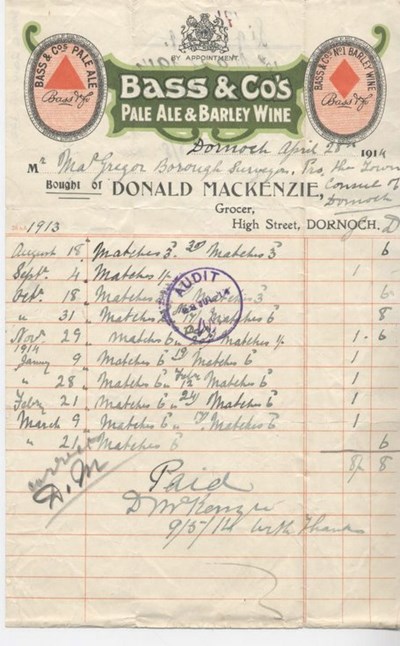 BY APPOINTMENT
BASS & CO'S PALE ALE
Bass & Co
BASS & CO'S
PALE ALE & BARLEY WINE
BASS & CO'S No 1 BARLEY WINE
Bass & Co
Dornoch April 28th 1914
Mr MacGregor Borough Surveyor, Pro, the Town
Council of
Dornoch
Bought of DONALD MACKENZIE,
Grocer,
High Street, DORNOCH.
1913
August 18 Matches 3. Matches 3 6
Sept 4 Matches 1/- 1 -
Octr 18 Matches Matches 3 6
" 31 Matches Matches 6 8
Novr 29 Matches 6 Matches 1/- 1 - 6
1914
Janry 9 Matches 6 " 19 Matches 6 1
" 28 Matches 6 " Febr 12 Matches 6 1
Febry 21 Matches 6 " 24 Matches 6 1
March 9 Matches 6 " Matches 6 1
" 21 Matches 6 6
8/- 8
AUDIT
correct
D. M
Paid
D McKenzie
9/5/14 With Thanks